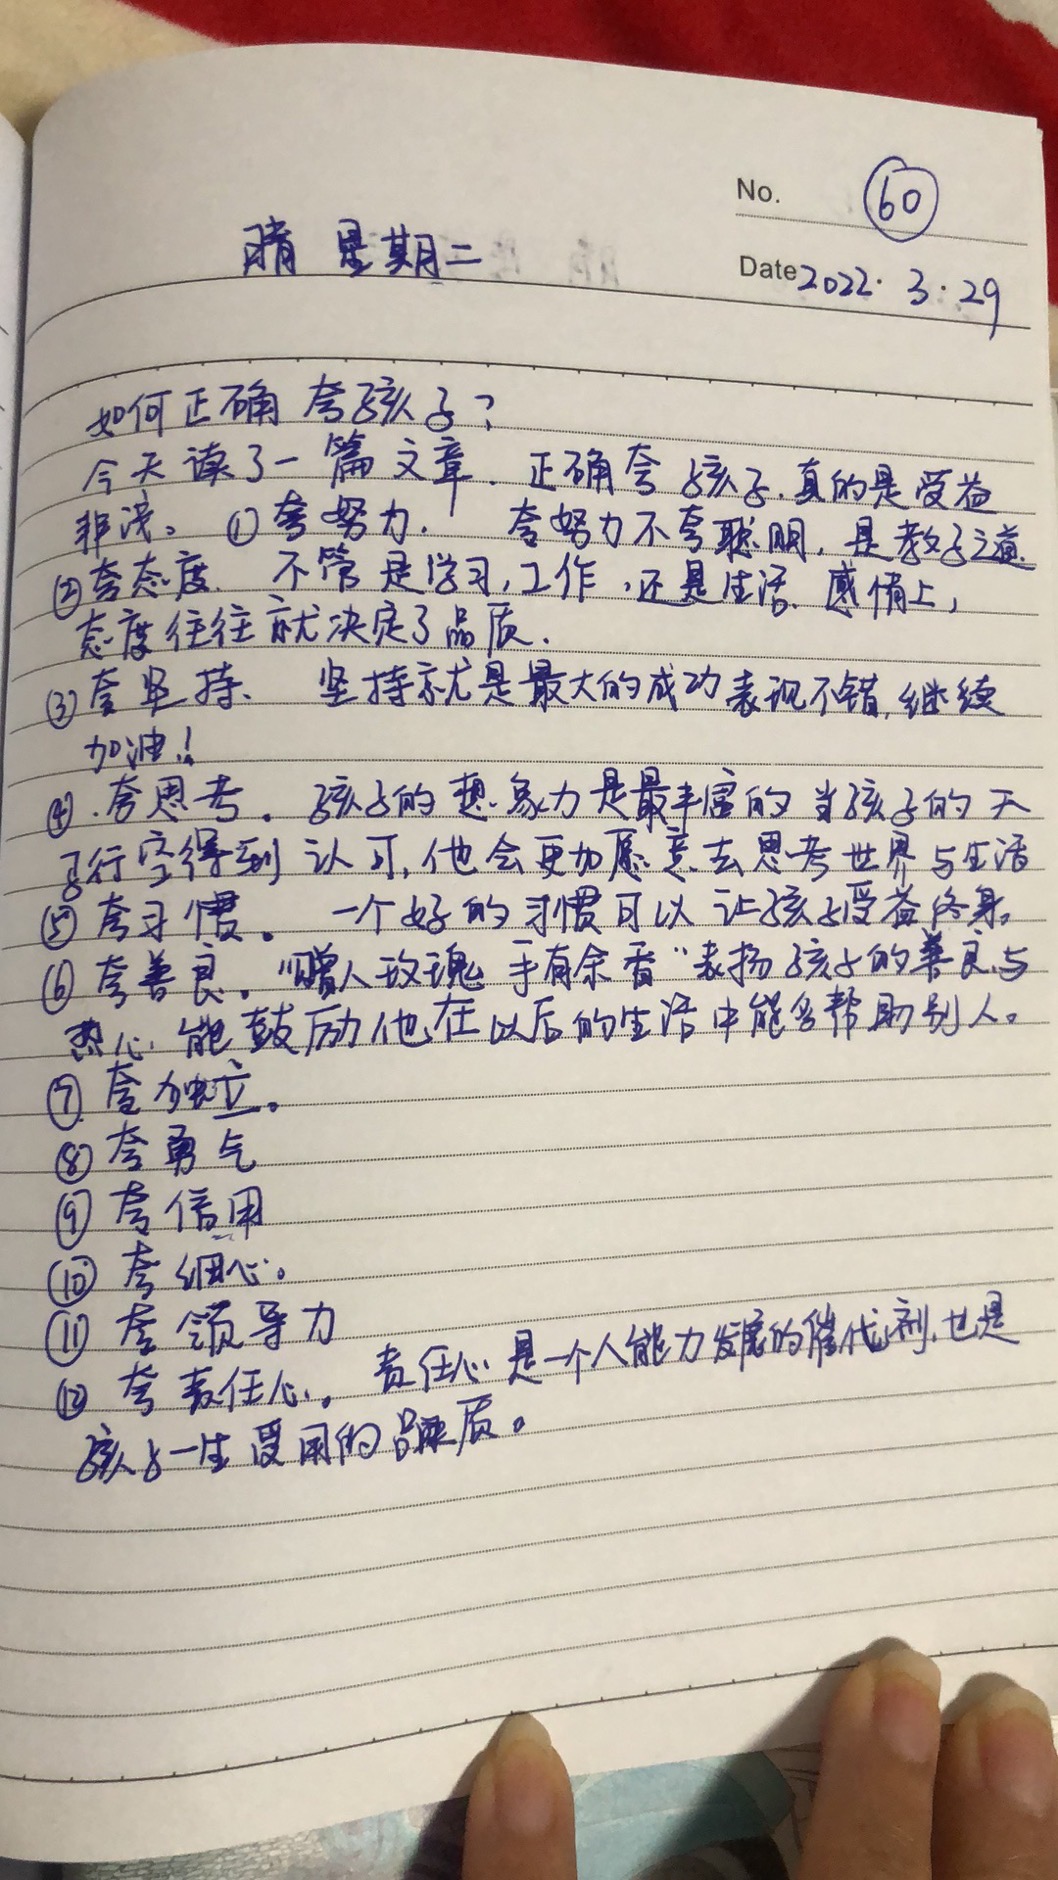 No. 60
晴 星期二
Date 2022.3.29
如何正确夸孩子?
今天读了一篇文章.正确夸孩子.真的是受益
非浅。①夸努力. 夸努力不夸聪明,是教子之道.
②夸态度. 不管是学习,工作,还是生活.感情上,
态度往往就决定了品质.
③夸坚持、 坚持就是最大的成功表现不错,继续
加油!
④.夸思考。孩子的想象力是最丰富的当孩子的天
马行空得到认可,他会更加愿意去思考世界与生活
⑤夸习惯。 一个好的习惯可以让孩子受益终身。
⑥夸善良。"赠人玫瑰 手有余香"表扬孩子的善良与
热心.能鼓励他在以后的生活中能多帮助别人。
⑦夸独立。
⑧夸勇气
⑨夸信用
⑩夸细心。
⑪夸领导力
⑫夸责任心。责任心是一个人能力发展的催化剂.也是
孩子一生受用的品质。